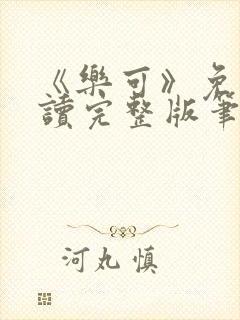 《樂可》免
讀完整版筆
河丸慎